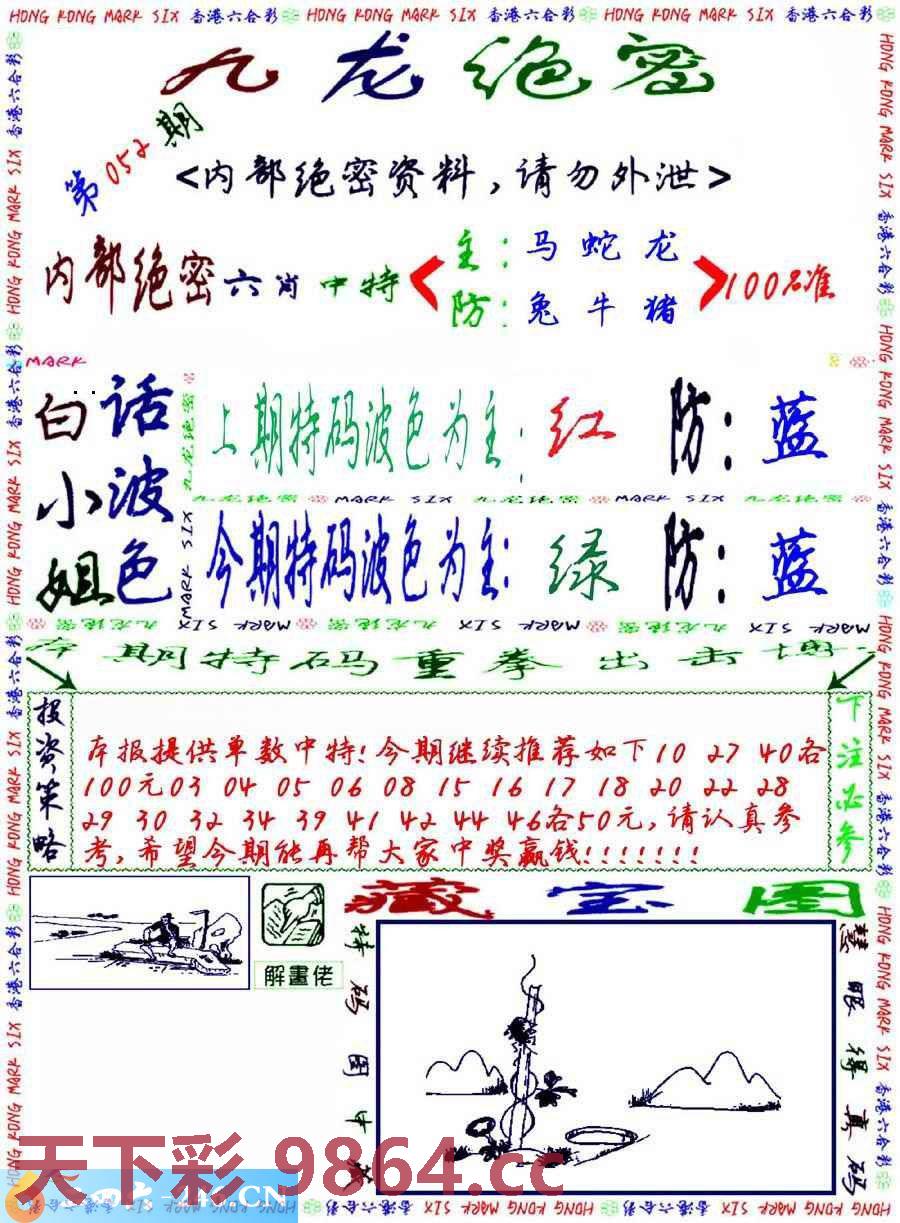 HONG KONG MARK SIX 香港六合彩 HONG KONG MARK SIX 香港六合彩 HONG KONG MARK SIX 香港六合彩
九龙绝密
第052期
<内部绝密资料,请勿外泄>
内部绝密六肖中特
主:马蛇龙
防:兔牛猪
100%准
MARK
白话小波姐色
上期特码波色为主:红 防:蓝
九龙绝密 MARK SIX 九龙绝密 MARK SIX 九龙绝密
今期特码波色为主:绿 防:蓝
九龙绝密 MARK SIX
本期特码重拳出击博
投资策略
本报提供单数中特!今期继续推荐如下10 27 40各
100元03 04 05 06 08 15 16 17 18 20 22 28
29 30 32 34 39 41 42 44 46各50元,请认真参
考,希望今期能再帮大家中奖赢钱!!!!!!!
下注必参
藏宝图
解畫佬
特码图中藏
慧眼得真码
天下彩.9864.cc
-246.CN